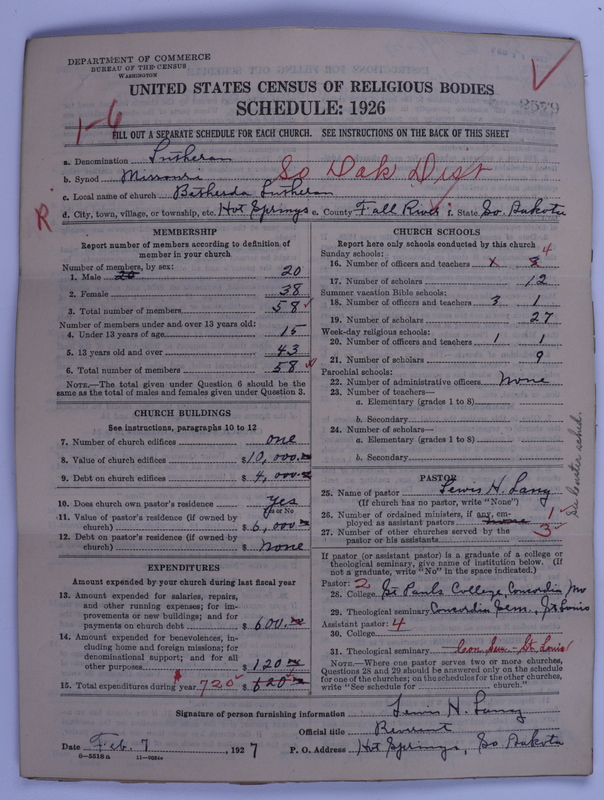 DEPARTMENT OF COMMERCE
BUREAU OF THE CENSUS
WASHINGTON
UNITED STATES CENSUS OF RELIGIOUS BODIES
SCHEDULE: 1926
2579
1-6
FILL OUT A SEPARATE SCHEDULE FOR EACH CHURCH. SEE INSTRUCTIONS ON THE BACK OF THIS SHEET
a. Denomination Lutheran
b. Synod Missouri
So Dak Dist
c. Local name of church Bethesda Lutheran
d. City, town, village, or township, etc. Hot Springs e. County Fall River f. State So. Dakota
R.
MEMBERSHIP
Report number of members according to definition of
member in your church
Number of members, by sex:
1. Male 20 20
2. Female 38
3. Total number of members 58
Number of members under and over 13 years old:
4. Under 13 years of age 15
5. 13 years old and over 43
6. Total number of members 58
NOTE.—The total given under Question 6 should be
same as the total of males and females given under Question 3.
CHURCH BUILDINGS
See instructions, paragraphs 10 to 12
7. Number of church edifices one
8. Value of church edifices $10,000.xx
9. Debt on church edifices $4,000.xx
10. Does church own pastor's residence yes
Yes or No
11. Value of pastor's residence (if owned by
church) $6,000 xx
12. Debt on pastor's residence (if owned by
church) $ none
EXPENDITURES
Amount expended by your church during last fiscal year
13. Amount expended for salaries, repairs,
and other running expenses; for im-
provements or new buildings; and for
payments on church debt $600.xx
14. Amount expended for benevolences, in-
cluding home and foreign missions; for
denominational support; and for all
other purposes $120 xx
15. Total expenditures during year 720 $620 xx
CHURCH SCHOOLS
Report here only schools conducted by this church
Sunday schools:
4
16. Number of officers and teachers x 3
17. Number of scholars 12
Summer vacation Bible schools:
18. Number of officers and teachers 3 1
19. Number of scholars 27
Week-day religious schools:
20. Number of officers and teachers 1 1
21. Number of scholars 9
Parochial schools:
22. Number of administrative officers None
23. Number of teachers—
a. Elementary (grades 1 to 8)
b. Secondary
24. Number of scholars—
a. Elementary (grades 1 to 8)
b. Secondary
PASTOR
25. Name of pastor Lewis H. Lang
(If church has no pastor, write "None")
26. Number of ordained ministers, if any, em-
ployed as assistant pastors none 1
27. Number of other churches served by the
pastor or his assistants 3
If pastor (or assistant pastor) is a graduate of a college or
theological seminary, give name of institution below. (If
not a graduate, write "No" in the space indicated.)
Pastor: 2
28. College St Pauls College, Concordia Mo
29. Theological seminary Concordia Sem., St Louis
Assistant pastor: 4
30. College
31. Theological seminary Con. Sem - St. Louis
NOTE.—Where one pastor serves two or more churches,
Questions 28 and 29 should be answered only on the schedule
for one of the churches; on the schedules for the other churches,
write "See schedule for church."
Signature of person furnishing information Lewis H. Lang
Official title Reverent
Date Feb. 7, 1927 P. O. Address Hot Springs, So. Dakota